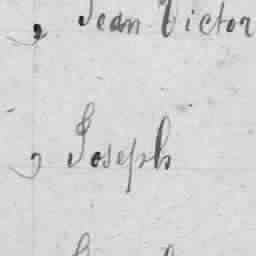 Jean Victor
Joseph